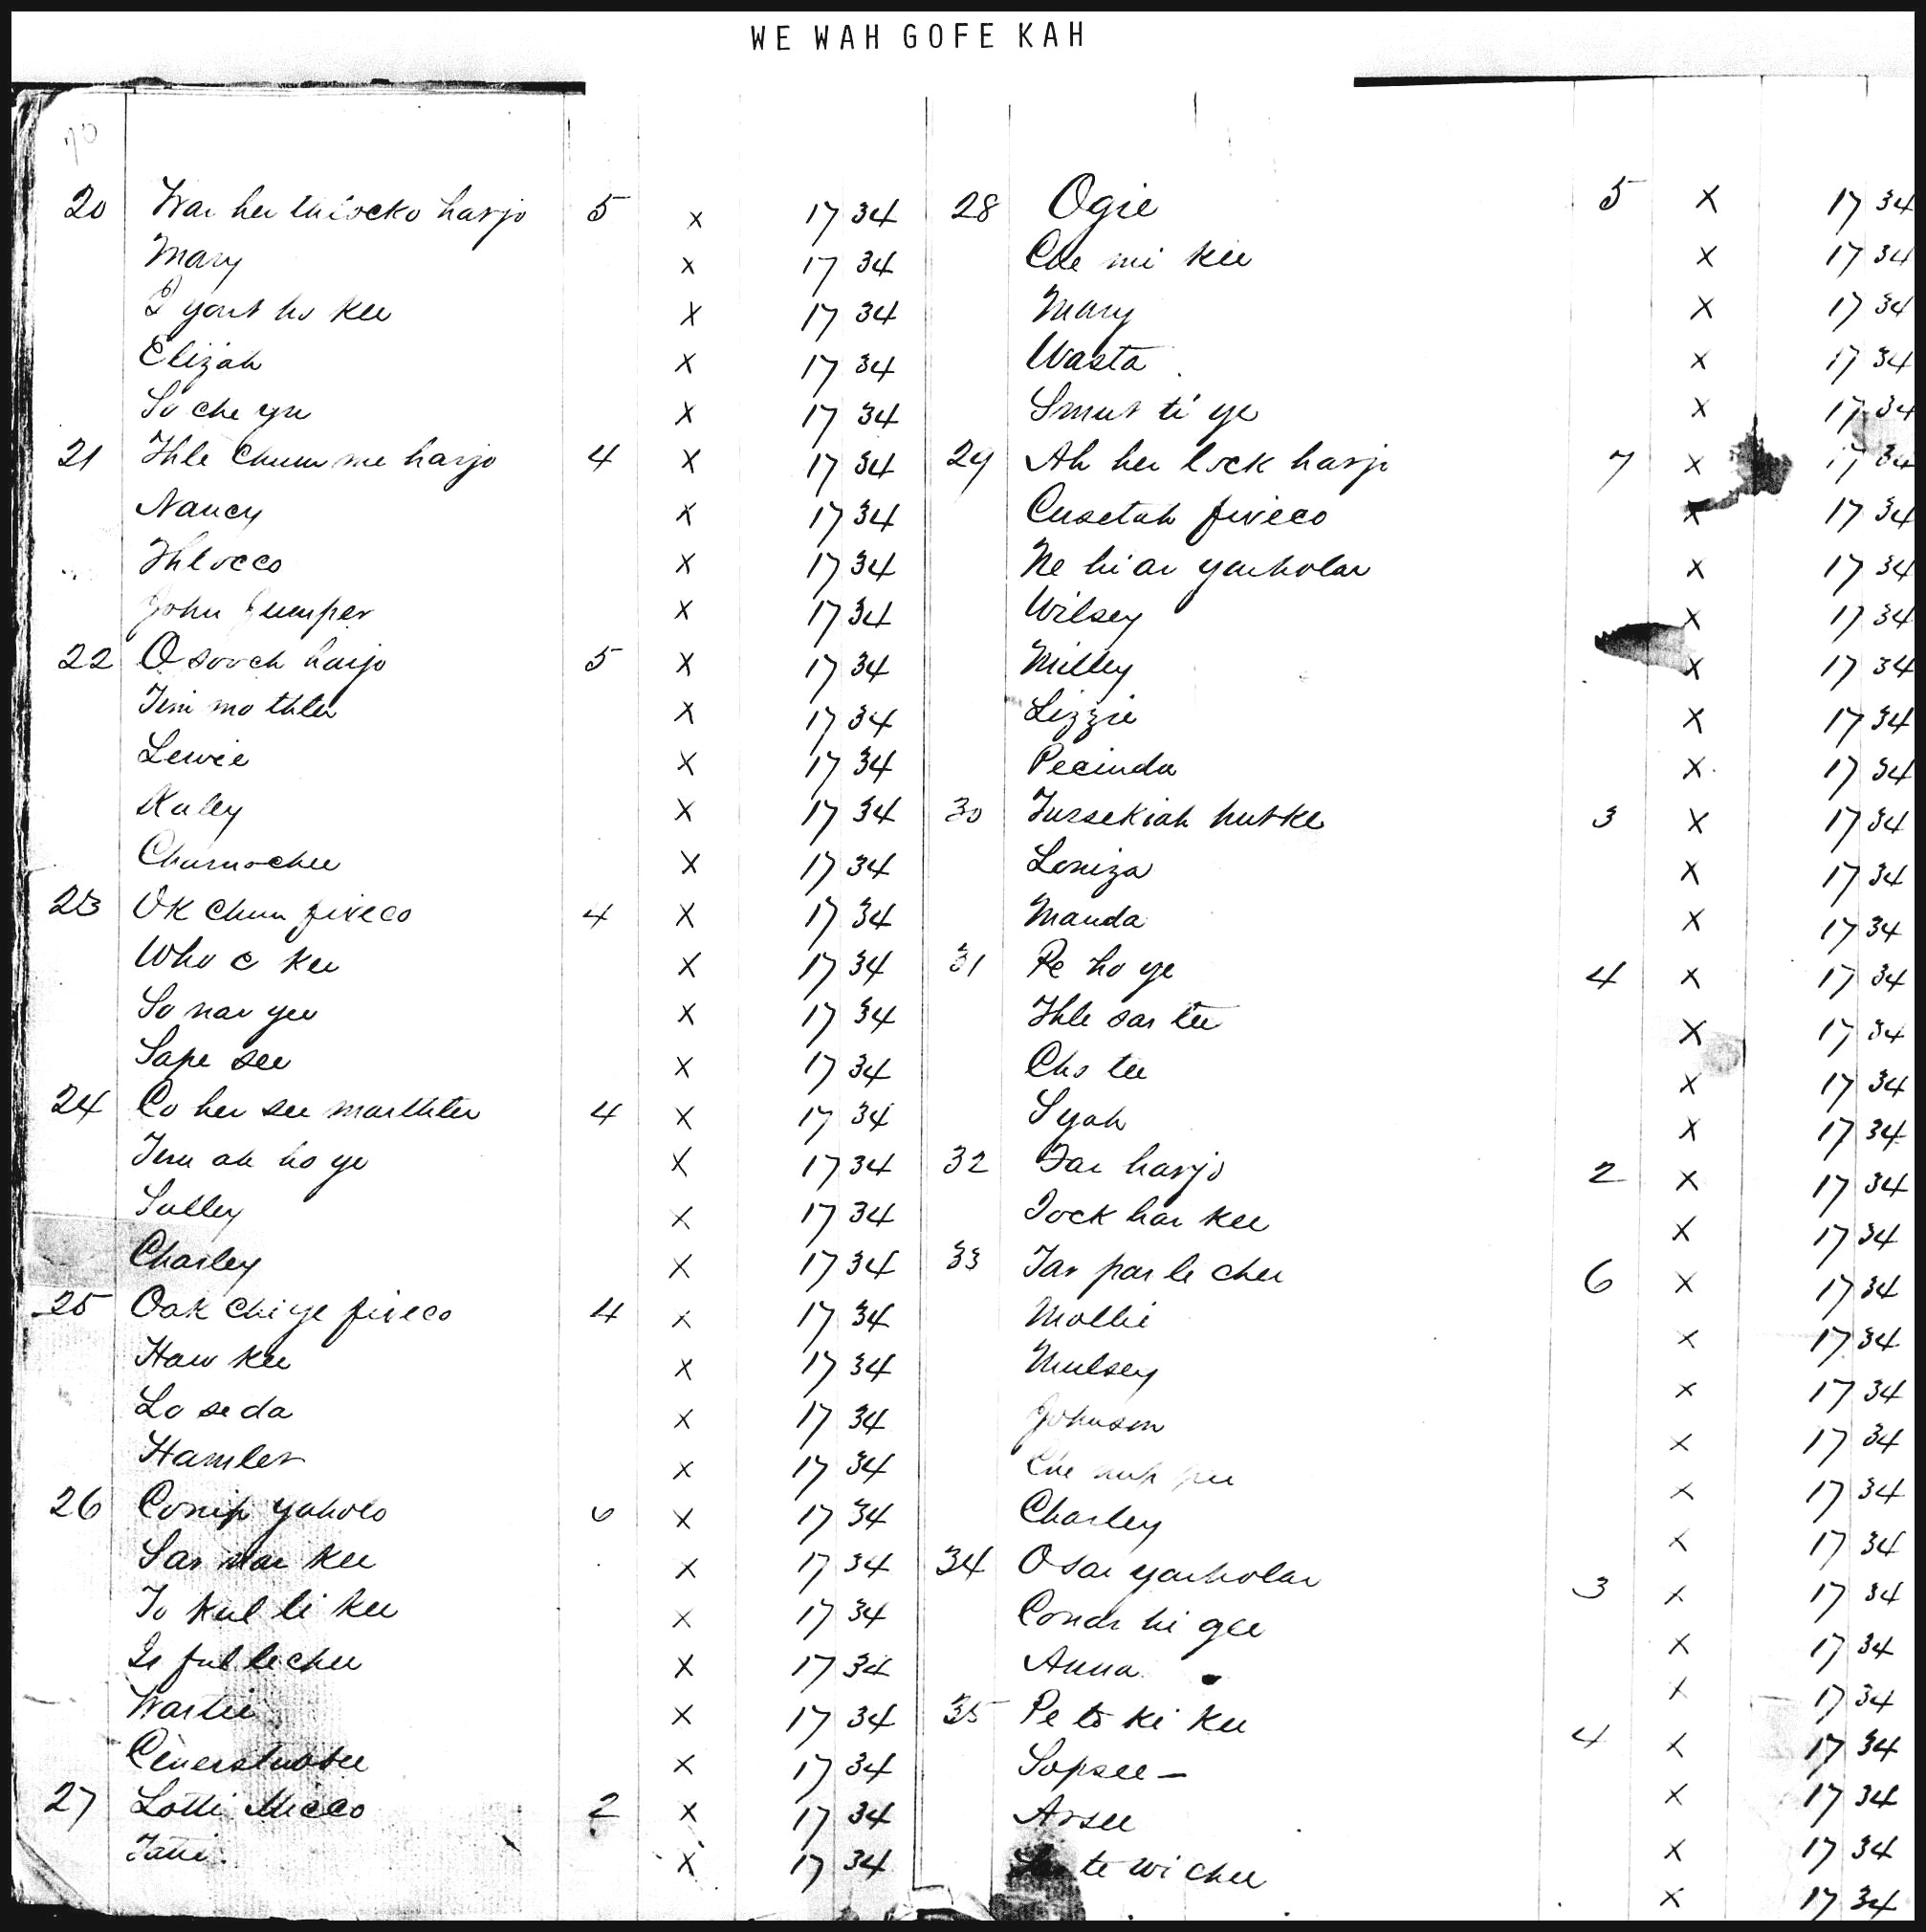 WE WAH GOFE KAH
70
20 War her thlocko harjo 5 x 17 34
Mary x 17 34
yout ho kee x 17 34
Elizah x 17 34
So che yee x 17 34
21 Thle Chum me harjo 4 x 17 34
Nancy x 17 34
Thlocco x 17 34
John Jumper x 17 34
22 Osooch harjo 5 x 17 34
Tim mo thlee x 17 34
Lewie x 17 34
Kaley x 17 34
Chumochee x 17 34
23 OK Chun fixeco 4 x 17 34
Who e kee x 17 34
So nar yee x 17 34
Sape see x 17 34
24 Co her see marthter 4 x 17 34
Tim ah ho ye x 17 34
Salley x 17 34
Charley x 17 34
25 Oak Chi ye fixeco 4 x 17 34
Haw kee x 17 34
Lo se da x 17 34
Hamler x 17 34
26 Conip yaholo 6 x 17 34
Sar nar kee x 17 34
To kul li kee x 17 34
Is ful lechee x 17 34
Warlie x 17 34
x 17 34
27 Lotti Micco 2 x 17 34
Tatti x 17 34
28 Ogie 5 x 17 34
Che mi kee x 17 34
Mary x 17 34
Wasta x 17 34
Smut ti ye x 17 34
29 Ah her lock harjo 7 x 17 34
Cusetah fixeco x 17 34
Ne hi ar yarholar x 17 34
Wilsey x 17 34
Milley x 17 34
Lizzie x 17 34
Pecinda x 17 34
30 Tursekiah hutke 3 x 17 34
Loniza x 17 34
Manda x 17 34
31 Pe ho ye 4 x 17 34
Thle sar tee x 17 34
Cho tee x 17 34
Syah x 17 34
32 Far harjo 2 x 17 34
Jock har kee x 17 34
33 Tar par le chee 6 x 17 34
Mollie x 17 34
Mulsey x 17 34
Johnson x 17 34
Che x 17 34
Charley x 17 34
34 Osar yarholar 3 x 17 34
Conar hi gee x 17 34
Anna x 17 34
35 Pe to ki kee 4 x 17 34
Sopsee — x 17 34
Arsee x 17 34
te wi chee x 17 34